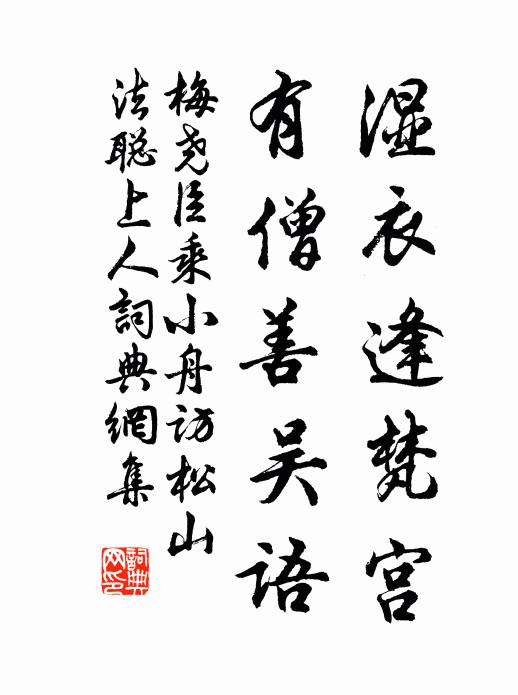 湿衣逢梵宫
有僧善吴语
梅尧臣乘小舟訪松山
法聪上人詞典網集
詞典网印